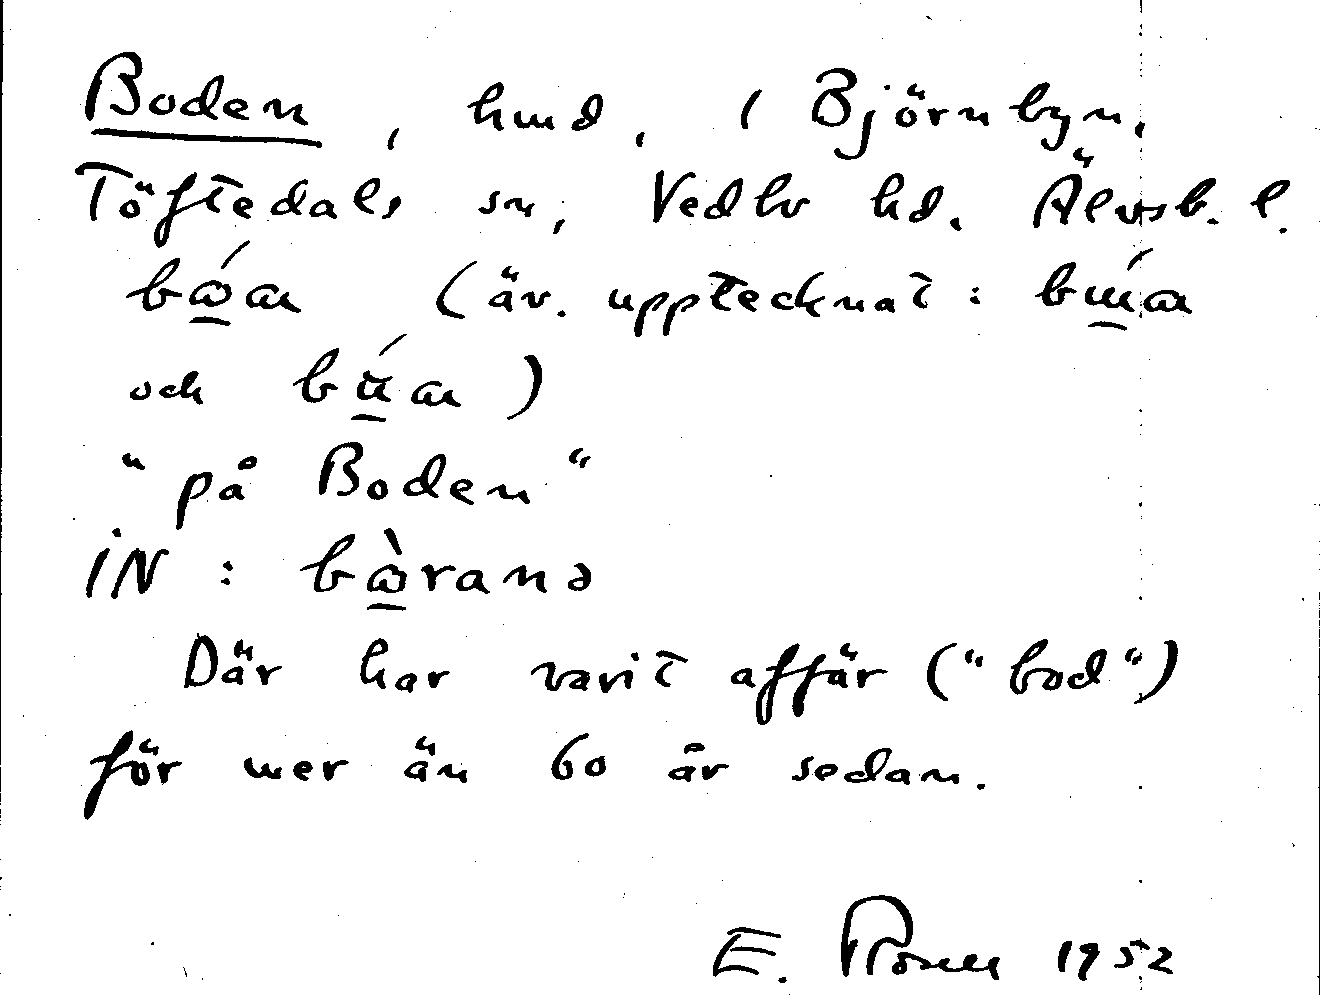 Boden, hmd, i Björnbyn,
Töftedals sn, Vedbo hd. Älvsb. l.
(äv. upptecknat:
och )
"på Boden"
iN:
Där har varit affär ("bod")
för mer än 60 år sedan.
E. 1952